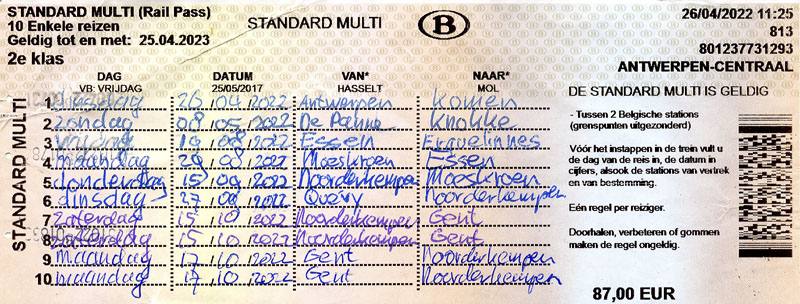 STANDARD MULTI (Rail Pass)
10 Enkele reizen
Geldig tot en met: 25.04.2023
2e klas
STANDARD MULTI
B
26/04/2022 11:25
813
801237731293
ANTWERPEN-CENTRAAL
DAG DATUM VAN* NAAR*
VB: VRIJDAG 25/05/2017 HASSELT MOL
STANDARD MULTI
1 dinsdag 26 04 2022 Antwerpen Komen
2 zondag 08 05 2022 De Panne Knokke
3 vrijdag 19 08 2022 Essen Erquelinnes
4 maandag 29 08 2022 Moeskroen Essen
5 donderdag 15 09 2022 Noorderkempen Moeskroen
6 dinsdag 27 09 2022 Quévy Noorderkempen
7 zaterdag 15 10 2022 Noorderkempen Gent
8 zaterdag 15 10 2022 Noorderkempen Gent
9 maandag 17 10 2022 Gent Noorderkempen
10 maandag 17 10 2022 Gent Noorderkempen
DE STANDARD MULTI IS GELDIG
- Tussen 2 Belgische stations
(grenspunten uitgezonderd)
Vóór het instappen in de trein vult u
de dag van de reis in, de datum in
cijfers, alsook de stations van vertrek
en van bestemming.
Eén regel per reiziger.
Doorhalen, verbeteren of gommen
maken de regel ongeldig.
87,00 EUR